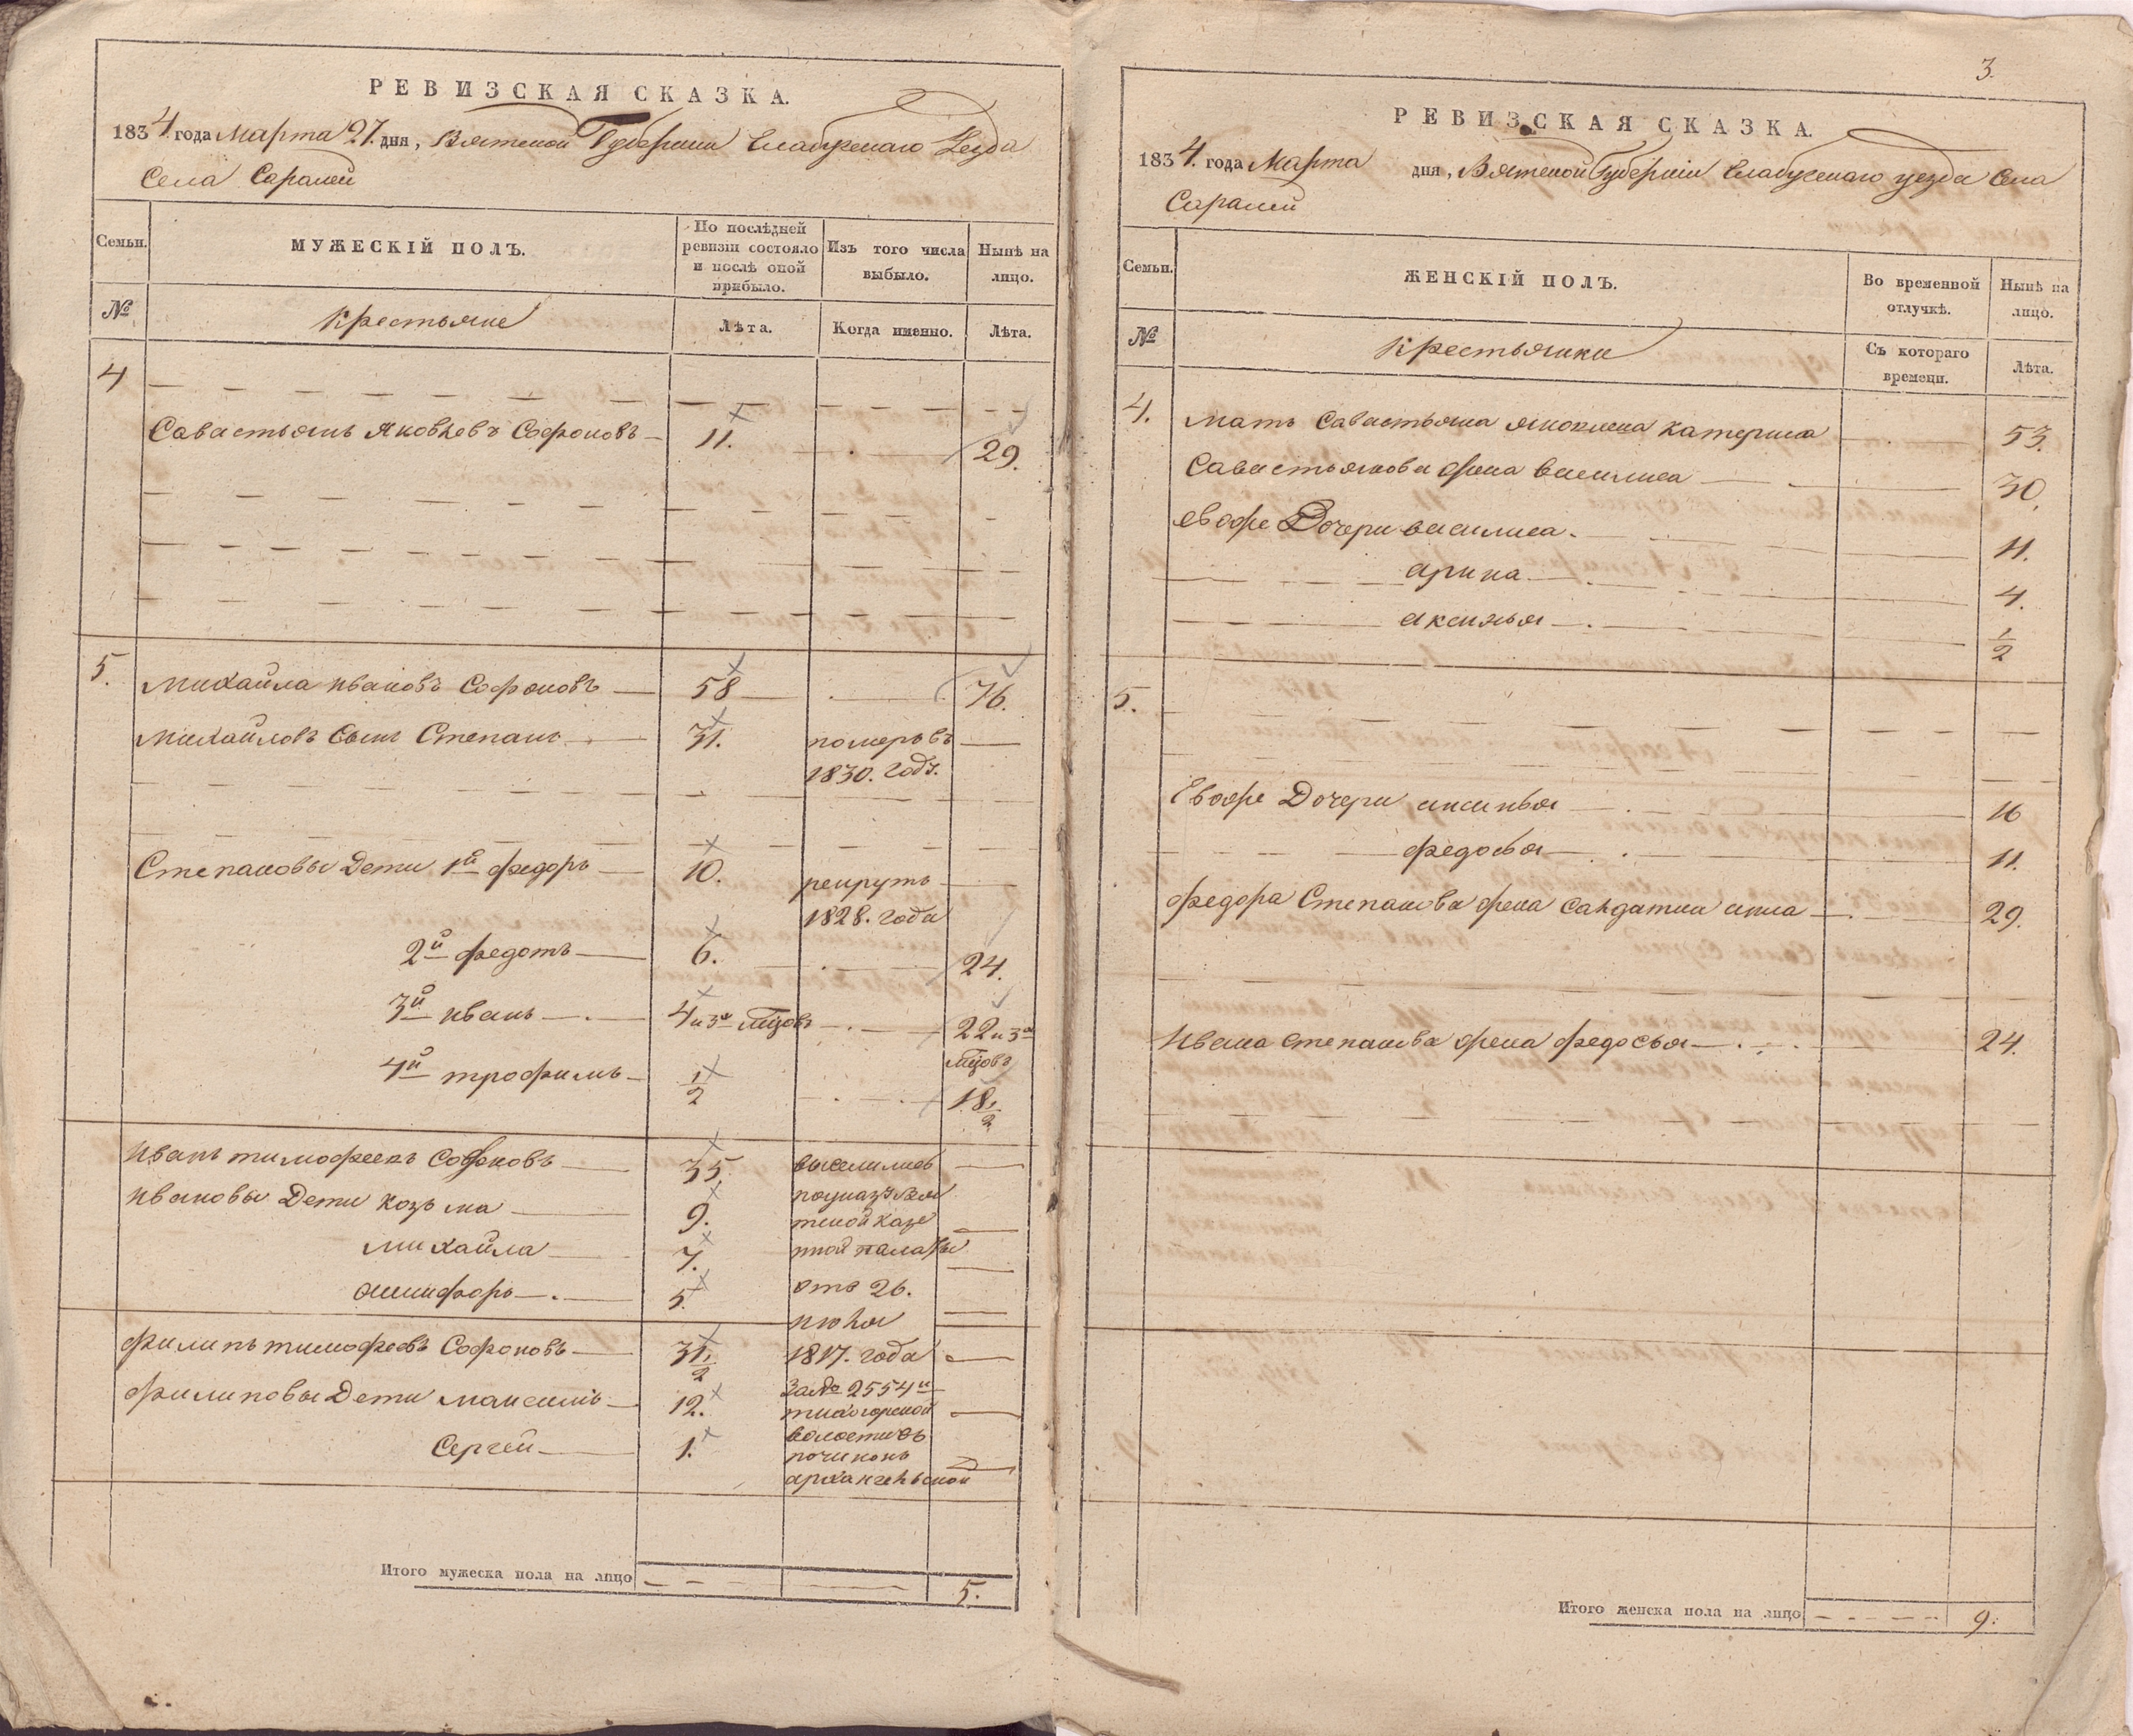 РЕВИЗСКАЯ СКАЗКА.
1834. года Марта 27. дня, Вятской Губернии Елабужскаго Уезда
Села Саралей
Семьи.
МУЖЕСКІЙ ПОЛЪ.
По послѣдней ревизіи состояло и послѣ оной прибыло.
Изъ того числа выбыло.
Нынѣ на лицо.
№
Крестьяне
Лѣта.
Когда именно.
Лѣта.
4
Савастьянъ Яковлевъ Софоновъ 11. 29.
5.
Михайла Ивановъ Софоновъ 58 76.
Михайловъ Сынъ Степанъ 31. померъ въ
1830. годѣ.
Степановы Дети 1й федоръ 10. рекрутъ
1828. года
2й федотъ 6. 24.
3й иванъ 4 и 3 мцовъ 22 и 3
мцовъ
4й трофимъ 1/2 18 1/2
Иванъ тимофеевъ Софоновъ 35. выселились
Ивановы Дети Козьма 9. поуказу Вят
ской казе
Михайла 7. нной палаты
5. отъ 26.
июля
филипъ тимофеевъ Софоновъ 31 1/2 1817. года
за № 2554
филиповы Дети максимъ 12.
волости въ
Сергей 1. починокъ
архангельской
Итого мужеска пола на лицо 5.
3.
РЕВИЗСКАЯ СКАЗКА.
1834. года Марта дня, Вятской Губерніи Елабужскаго уезда Села
Саралей
Семьи.
ЖЕНСКІЙ ПОЛЪ.
Во временной отлучкѣ.
Нынѣ на лицо.
№
Крестьянки
Съ котораго времени.
Лѣта.
4. мать Савастьяна яковлева катерина 53.
Савастьянова жена василиса 30.
евоже Дочери василиса. 11.
арина 4.
аксинья 1/2
5.
Евоже Дочери аксинья 16
федосья 11.
федора Степанова жена салдатка анна 29.
Ивана степанова жена федосья 24.
Итого женска пола на лицо 9.